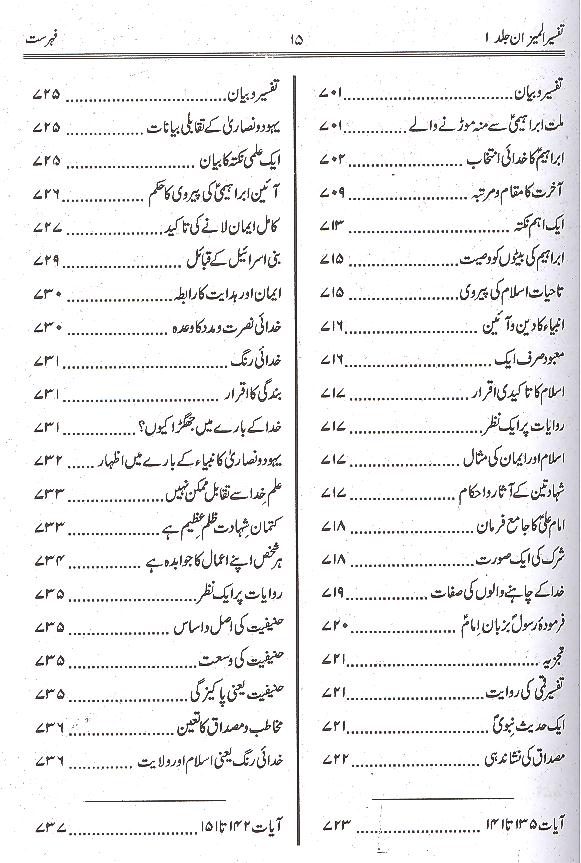 تفسیر المیزان جلد ۱
۱۵
فہرست
تفسیر و بیان ........ ۷۰۱
ملت ابراہیمیؑ سے منہ موڑنے والے ........ ۷۰۱
ابراہیمؑ کا خدائی انتخاب ........ ۷۰۲
آخرت کا مقام و مرتبہ ........ ۷۰۹
ایک اہم نکتہ ........ ۷۱۳
ابراہیمؑ کی بیٹوں کو وصیت ........ ۷۱۵
تاحیات اسلام کی پیروی ........ ۷۱۵
انبیاء کا دین و آئین ........ ۷۱۶
معبود صرف ایک ........ ۷۱۶
اسلام کا تاکیدی اقرار ........ ۷۱۷
روایات پر ایک نظر ........ ۷۱۷
اسلام اور ایمان کی مثال ........ ۷۱۷
شہادتین کے آثار و احکام ........ ۷۱۷
امام علیؑ کا جامع فرمان ........ ۷۱۸
شرک کی ایک صورت ........ ۷۱۸
خدا کے چاہنے والوں کی صفات ........ ۷۱۹
فرمودۂ رسولؐ بزبان امامؑ ........ ۷۲۰
تجزیہ ........ ۷۲۱
تفسیر قمی کی روایت ........ ۷۲۱
ایک حدیث نبویؐ ........ ۷۲۱
مصداق کی نشاندہی ........ ۷۲۲
آیات ۱۳۵ تا ۱۴۱ ........ ۷۲۳
تفسیر و بیان ........ ۷۲۵
یہود و نصاریٰ کے تقابلی بیانات ........ ۷۲۵
ایک علمی نکتہ کا بیان ........ ۷۲۵
آئین ابراہیمیؑ کی پیروی کا حکم ........ ۷۲۶
کامل ایمان لانے کی تاکید ........ ۷۲۷
بنی اسرائیل کے قبائل ........ ۷۲۹
ایمان اور ہدایت کا رابطہ ........ ۷۳۰
خدائی نصرت و مدد کا وعدہ ........ ۷۳۰
خدائی رنگ ........ ۷۳۱
بندگی کا اقرار ........ ۷۳۱
خدا کے بارے میں جھگڑا کیوں؟ ........ ۷۳۱
یہود و نصاریٰ کا انبیاء کے بارے میں اظہار ........ ۷۳۲
علم خدا سے تقابل ممکن نہیں ........ ۷۳۳
کتمان شہادت ظلم عظیم ہے ........ ۷۳۳
ہر شخص اپنے اعمال کا جوابدہ ہے ........ ۷۳۴
روایات پر ایک نظر ........ ۷۳۵
حنیفیت کی اصل و اساس ........ ۷۳۵
حنیفیت کی وسعت ........ ۷۳۵
حنیفیت یعنی پاکیزگی ........ ۷۳۵
مخاطب و مصداق کا تعین ........ ۷۳۶
خدائی رنگ یعنی اسلام اور ولایت ........ ۷۳۶
آیات ۱۴۲ تا ۱۵۱ ........ ۷۳۷